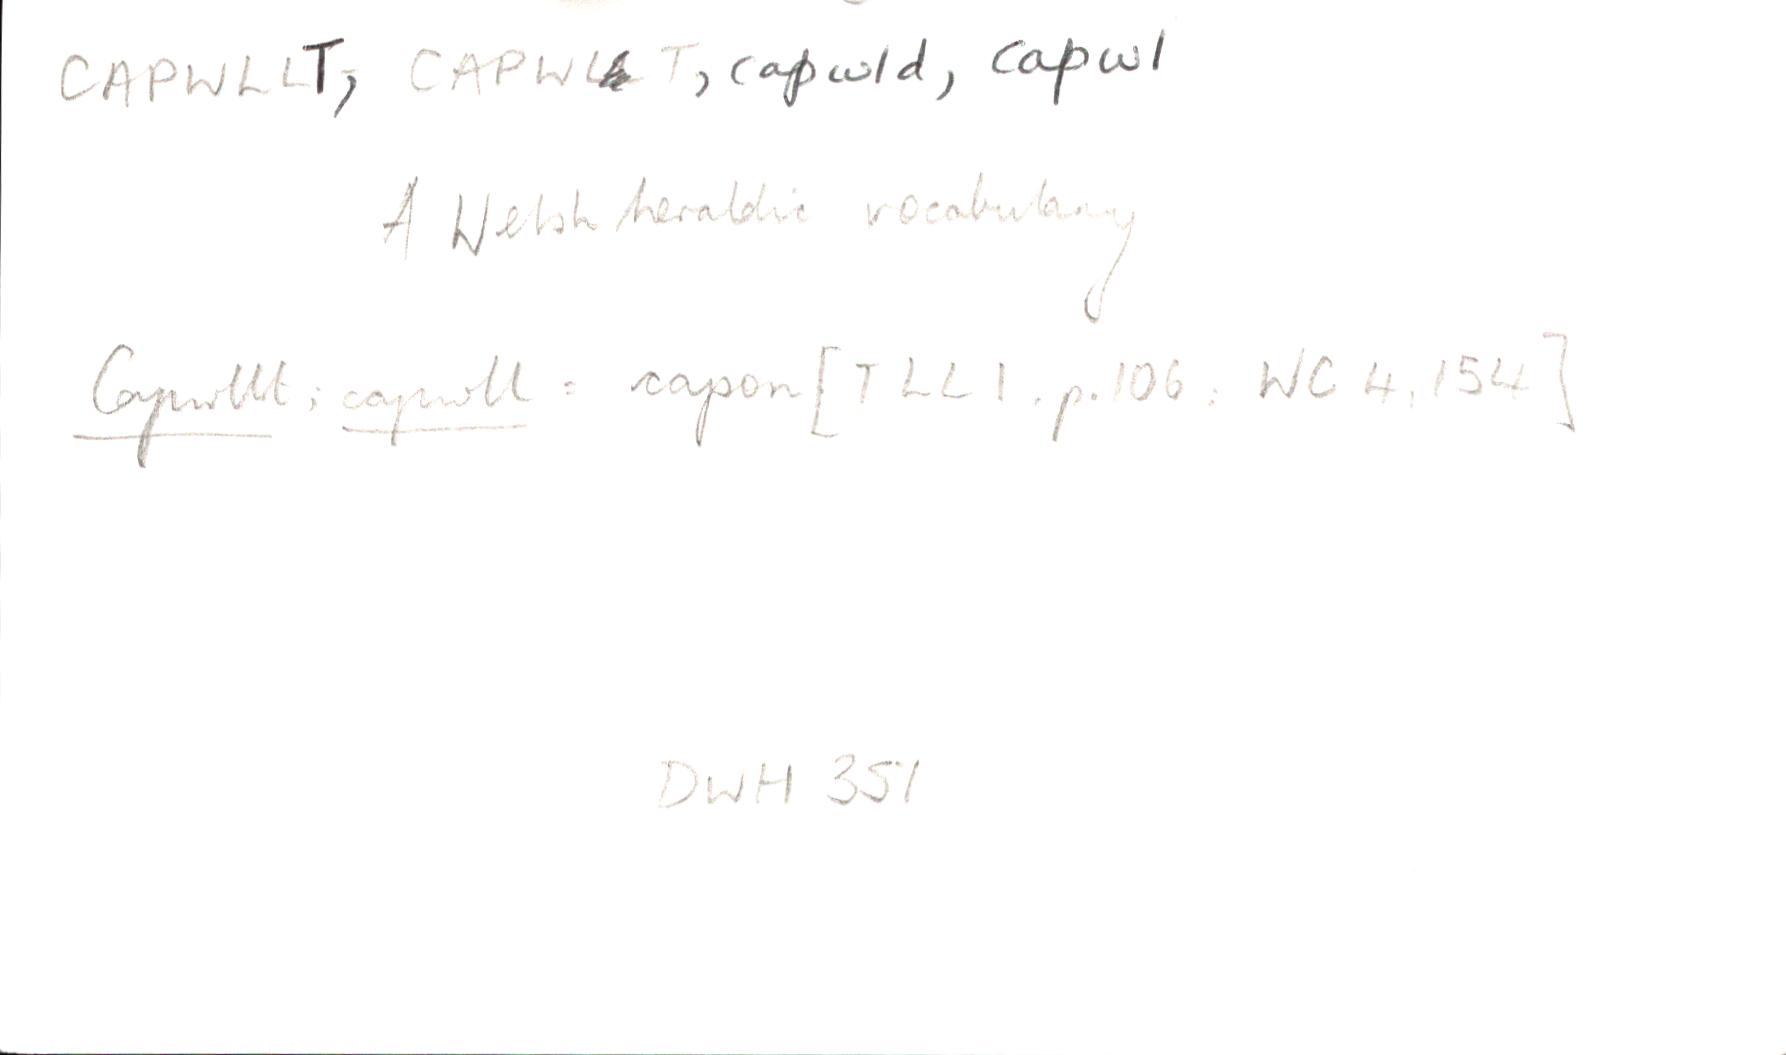 CAPWLLT, CAPWLT, capwld, capwl
A Welsh heraldic vocabulary
Capwllt; capwll = capon [TLL1. p.106; WC 4, 154]
DWH 351